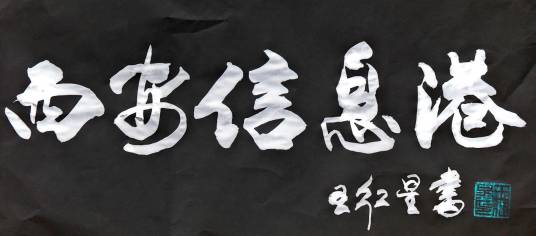 西安信息港
王红星書